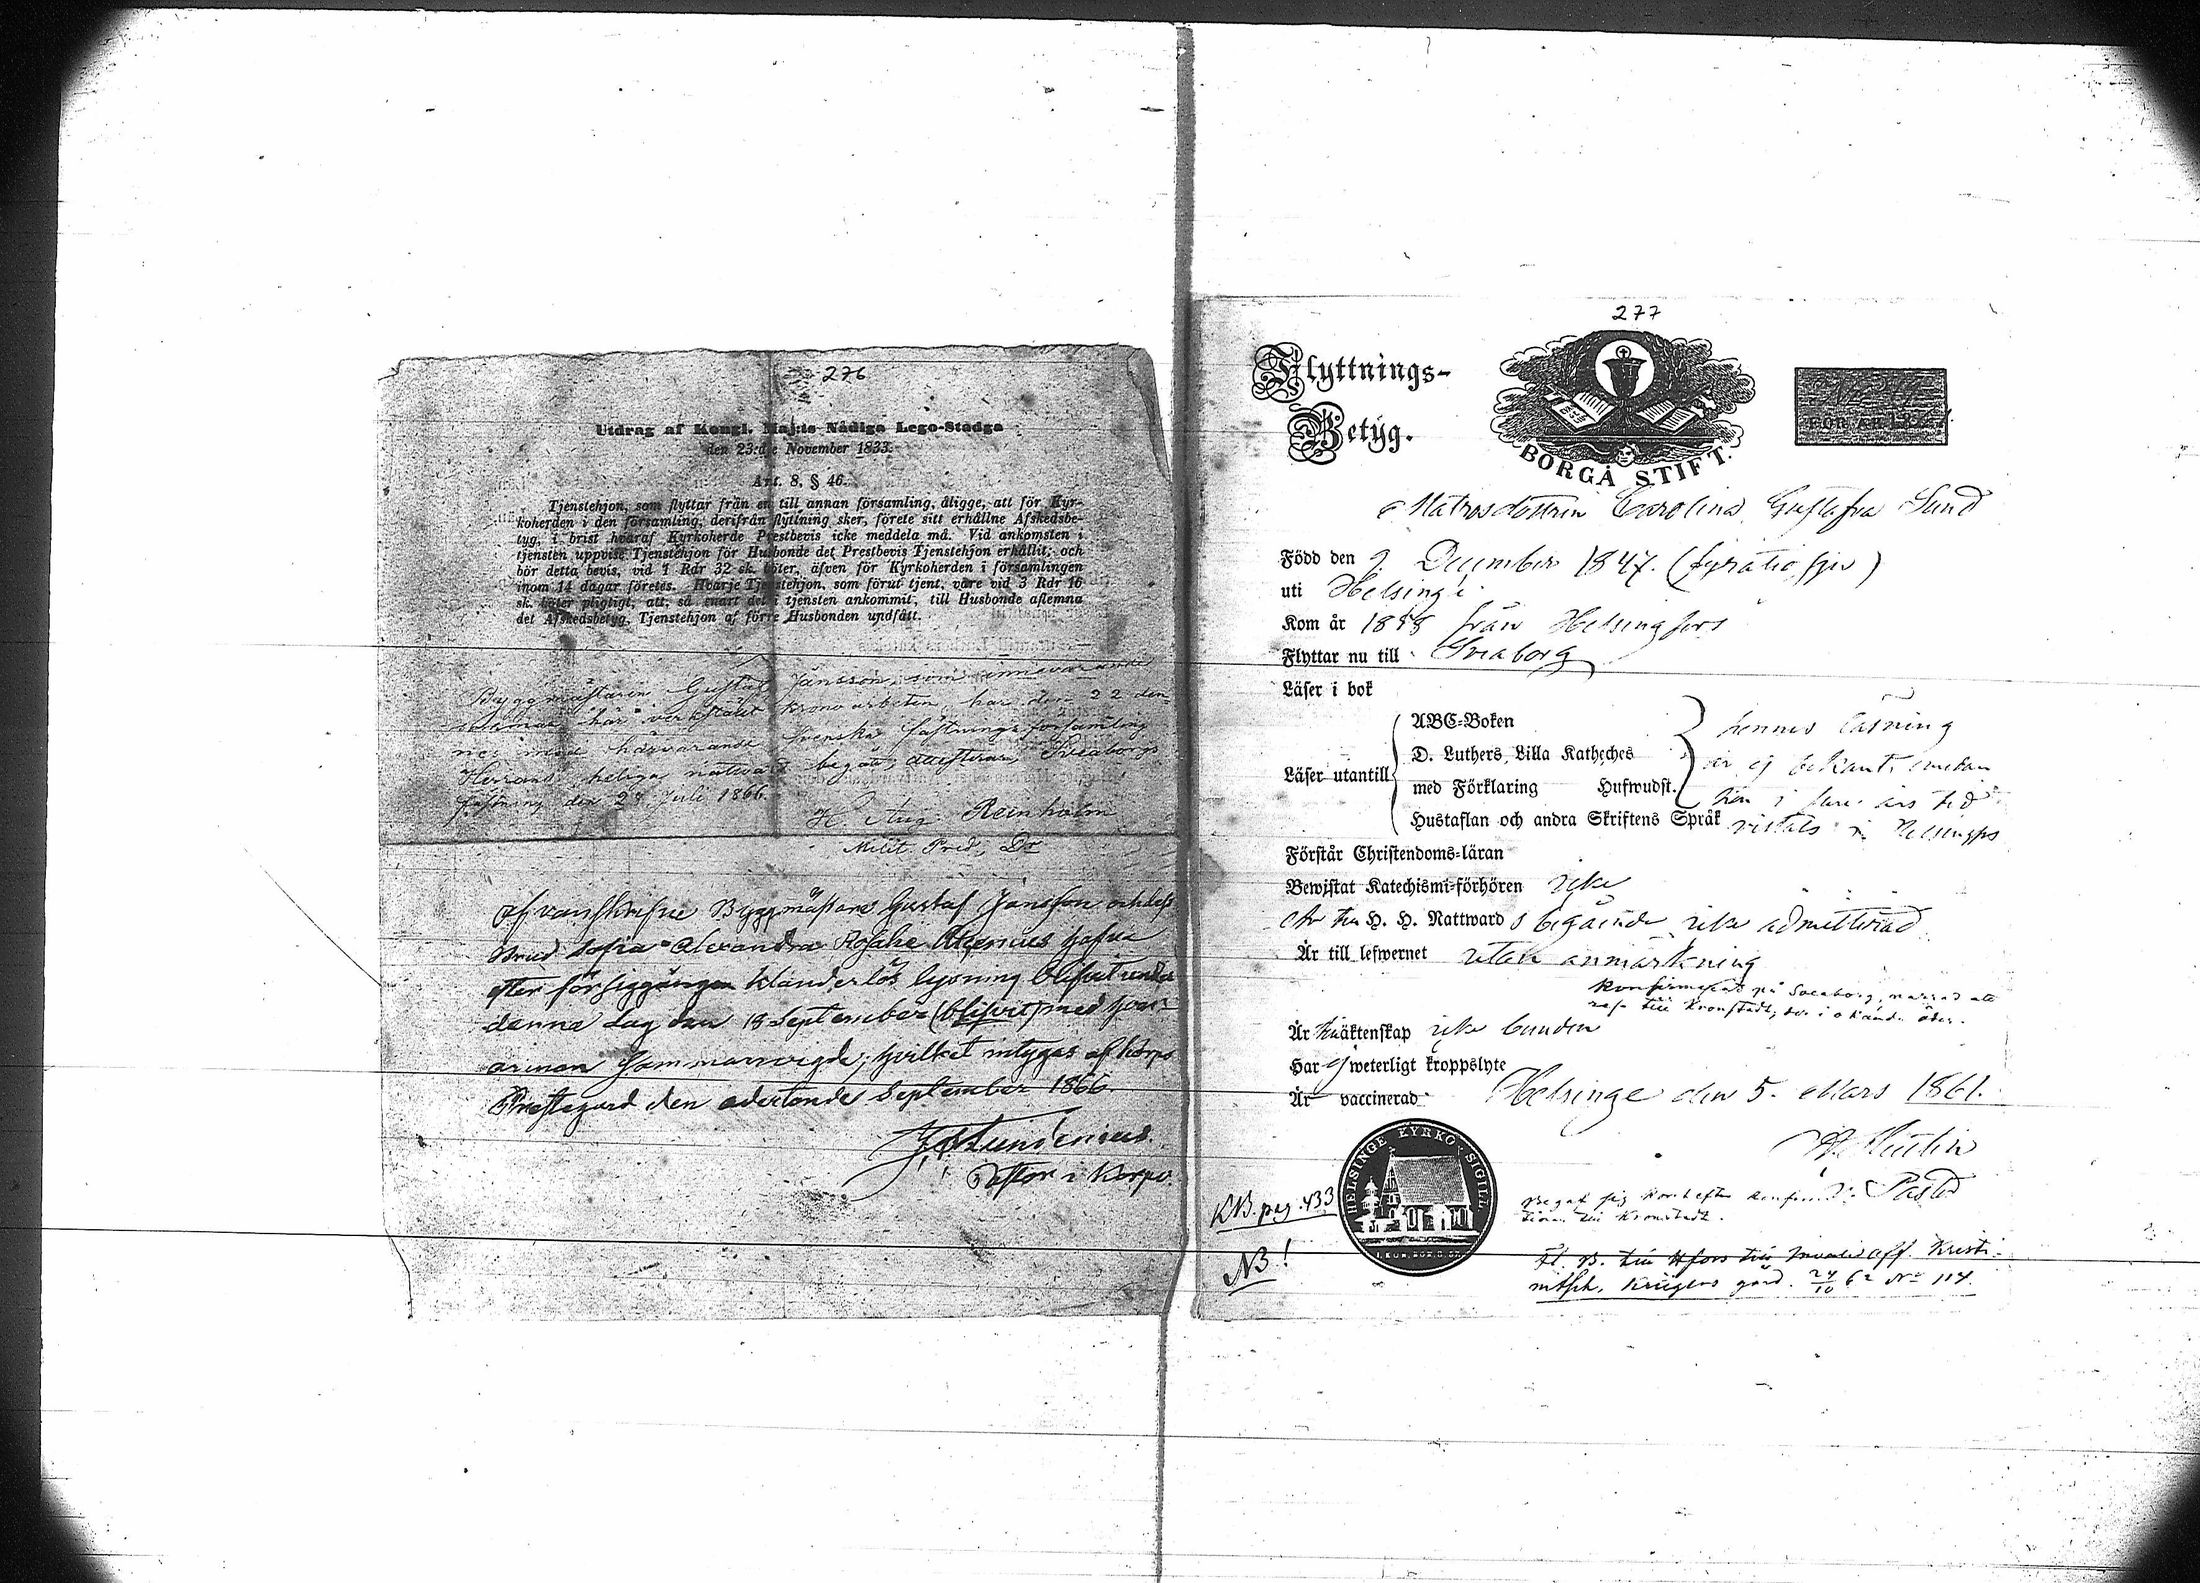 276
Utdrag af Kongl. Maj:ts Nådiga Lego-Stadga
den 23:dje November 1833.
Art. 8, § 46.
Tjenstehjon, som flyttar från en till annan församling, åligge, att för Kyr-
koherden i den församling, derifrån flyttning sker, förete sitt erhållne Afskedsbe-
tyg, i brist hvaraf Kyrkoherde Prestbevis icke meddela må. Vid ankomsten i
tjensten uppvise Tjenstehjon för Husbonde det Prestbevis Tjenstehjon erhållit; och
bör detta bevis, vid 1 Rdr 32 sk. böter, äfven för Kyrkoherden i församlingen
inom 14 dagar företes. Hvarje Tjenstehjon, som förut tjent, vare vid 3 Rdr 16
sk. böter pligtigt, att, så snart det i tjensten ankommit, till Husbonde aflemna
det Afskedsbetyg, Tjenstehjon af förre Husbonden undfått.
Byggmästaren Gustaf Jansson, som innevarande
sommar här verkstält krono arbeten, har den 22 den-
nes med härvarande Svenska fästnings församling
Herrans heliga nattvard begått, attesterar, Sveaborgs
fästning den 24 Juli 1866.
H. Aug. Reinholm
Milit. Pred. Dr
Ofvanskrifne Byggmästare Gustaf Jansson och dess
Brud Sofia Alexandra Rosalie hafva
efter försiggången klanderlös lysning blifvit under
denna dag den 18 September (blifvit) med hvar-
annan sammanvigde; hvilket intygas af Korpo
Prestegård den adertonde September 1866
Pastor i Korpo.
277
Flyttnings-
Betyg.
BORGÅ STIFT.
FÖR ÅR
Matrosdottren Carolina Gustafva Sund
Född den 9 December 1847. (fyratio sju)
uti Helsinge
Kom år från Helsingfors
Flyttar nu till Sveaborg
Läser i bok
Läser utantill
ABC-Boken
D. Luthers Lilla Katheches
med Förklaring Hufwudst.
Hustaflan och andra Skriftens Språk
hennes läsning
är ej bekant, emedan
hon i flere års tid
vistats i Helsingfors
Förstår Christendoms-läran
Bewistat Katechismi-förhören icke
Är till H. H. Nattward s begående icke admitterad
Är till lefwernet utan anmärkning
Konfirmerad på Sveaborg, ärnad att
resa till Kronstadt,
Är till äktenskap icke bunden
Har ej weterligt kroppslyte
Är vaccinerad
Helsinge den 5. Mars 1861.
Pastor
HELSINGE KYRKO SIGILL
KB. pag. 433
NB!
Begaf sig kort efter
tionen till Kronstadt.
Fl. B. till Hfors till
Krügers gård. 24/10 62 No 114.